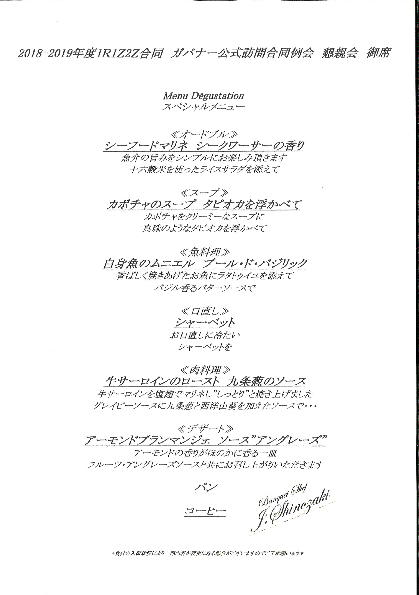 2018-2019年度1R1Z2Z合同 ガバナー公式訪問合同例会 懇親会 御席
Menu Dégustation
スペシャルメニュー
≪オードブル≫
シーフードマリネ シークワーサーの香り
魚介の旨みをシンプルにお楽しみ頂きます
十六穀米を使ったライスサラダを添えて
≪スープ≫
カボチャのスープ タピオカを浮かべて
カボチャをクリーミーなスープに
真珠のようなタピオカを浮かべて
≪魚料理≫
白身魚のムニエル ブール・ド・バジリック
香ばしく焼きあげたお魚にラタトゥイユを添えて
バジル香るバターソースで
≪口直し≫
シャーベット
お口直しに冷たい
シャーベットを
≪肉料理≫
牛サーロインのロースト 九条葱のソース
牛サーロインを塩麹でマリネし"しっとり"と焼き上げました
グレイビーソースに九条葱と西洋山葵を加えたソースで・・・
≪デザート≫
アーモンドブランマンジェ ソース"アングレーズ"
アーモンドの香りがほのかに香る一皿
フルーツ・アングレーズソースと共にお召し上がりいただきます
パン
コーヒー
Banquet Chef
J. Shinozaki